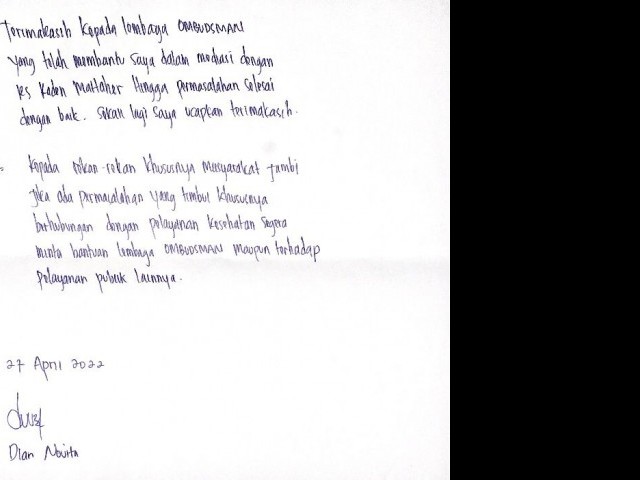 Terimakasih Kepada lembaga OMBUDSMAN
yang telah membantu saya dalam mediasi dengan
RS Raden Mattaher Hingga permasalahan selesai
dengan baik. Sekali lagi saya ucapkan terimakasih.
Kepada rekan-rekan khususnya Masyarakat Jambi
Jika ada permasalahan yang timbul khususnya
berhubungan dengan pelayanan kesehatan segera
minta bantuan lembaga OMBUDSMAN maupun terhadap
pelayanan publik lainnya.
27 April 2022
Dian Novita